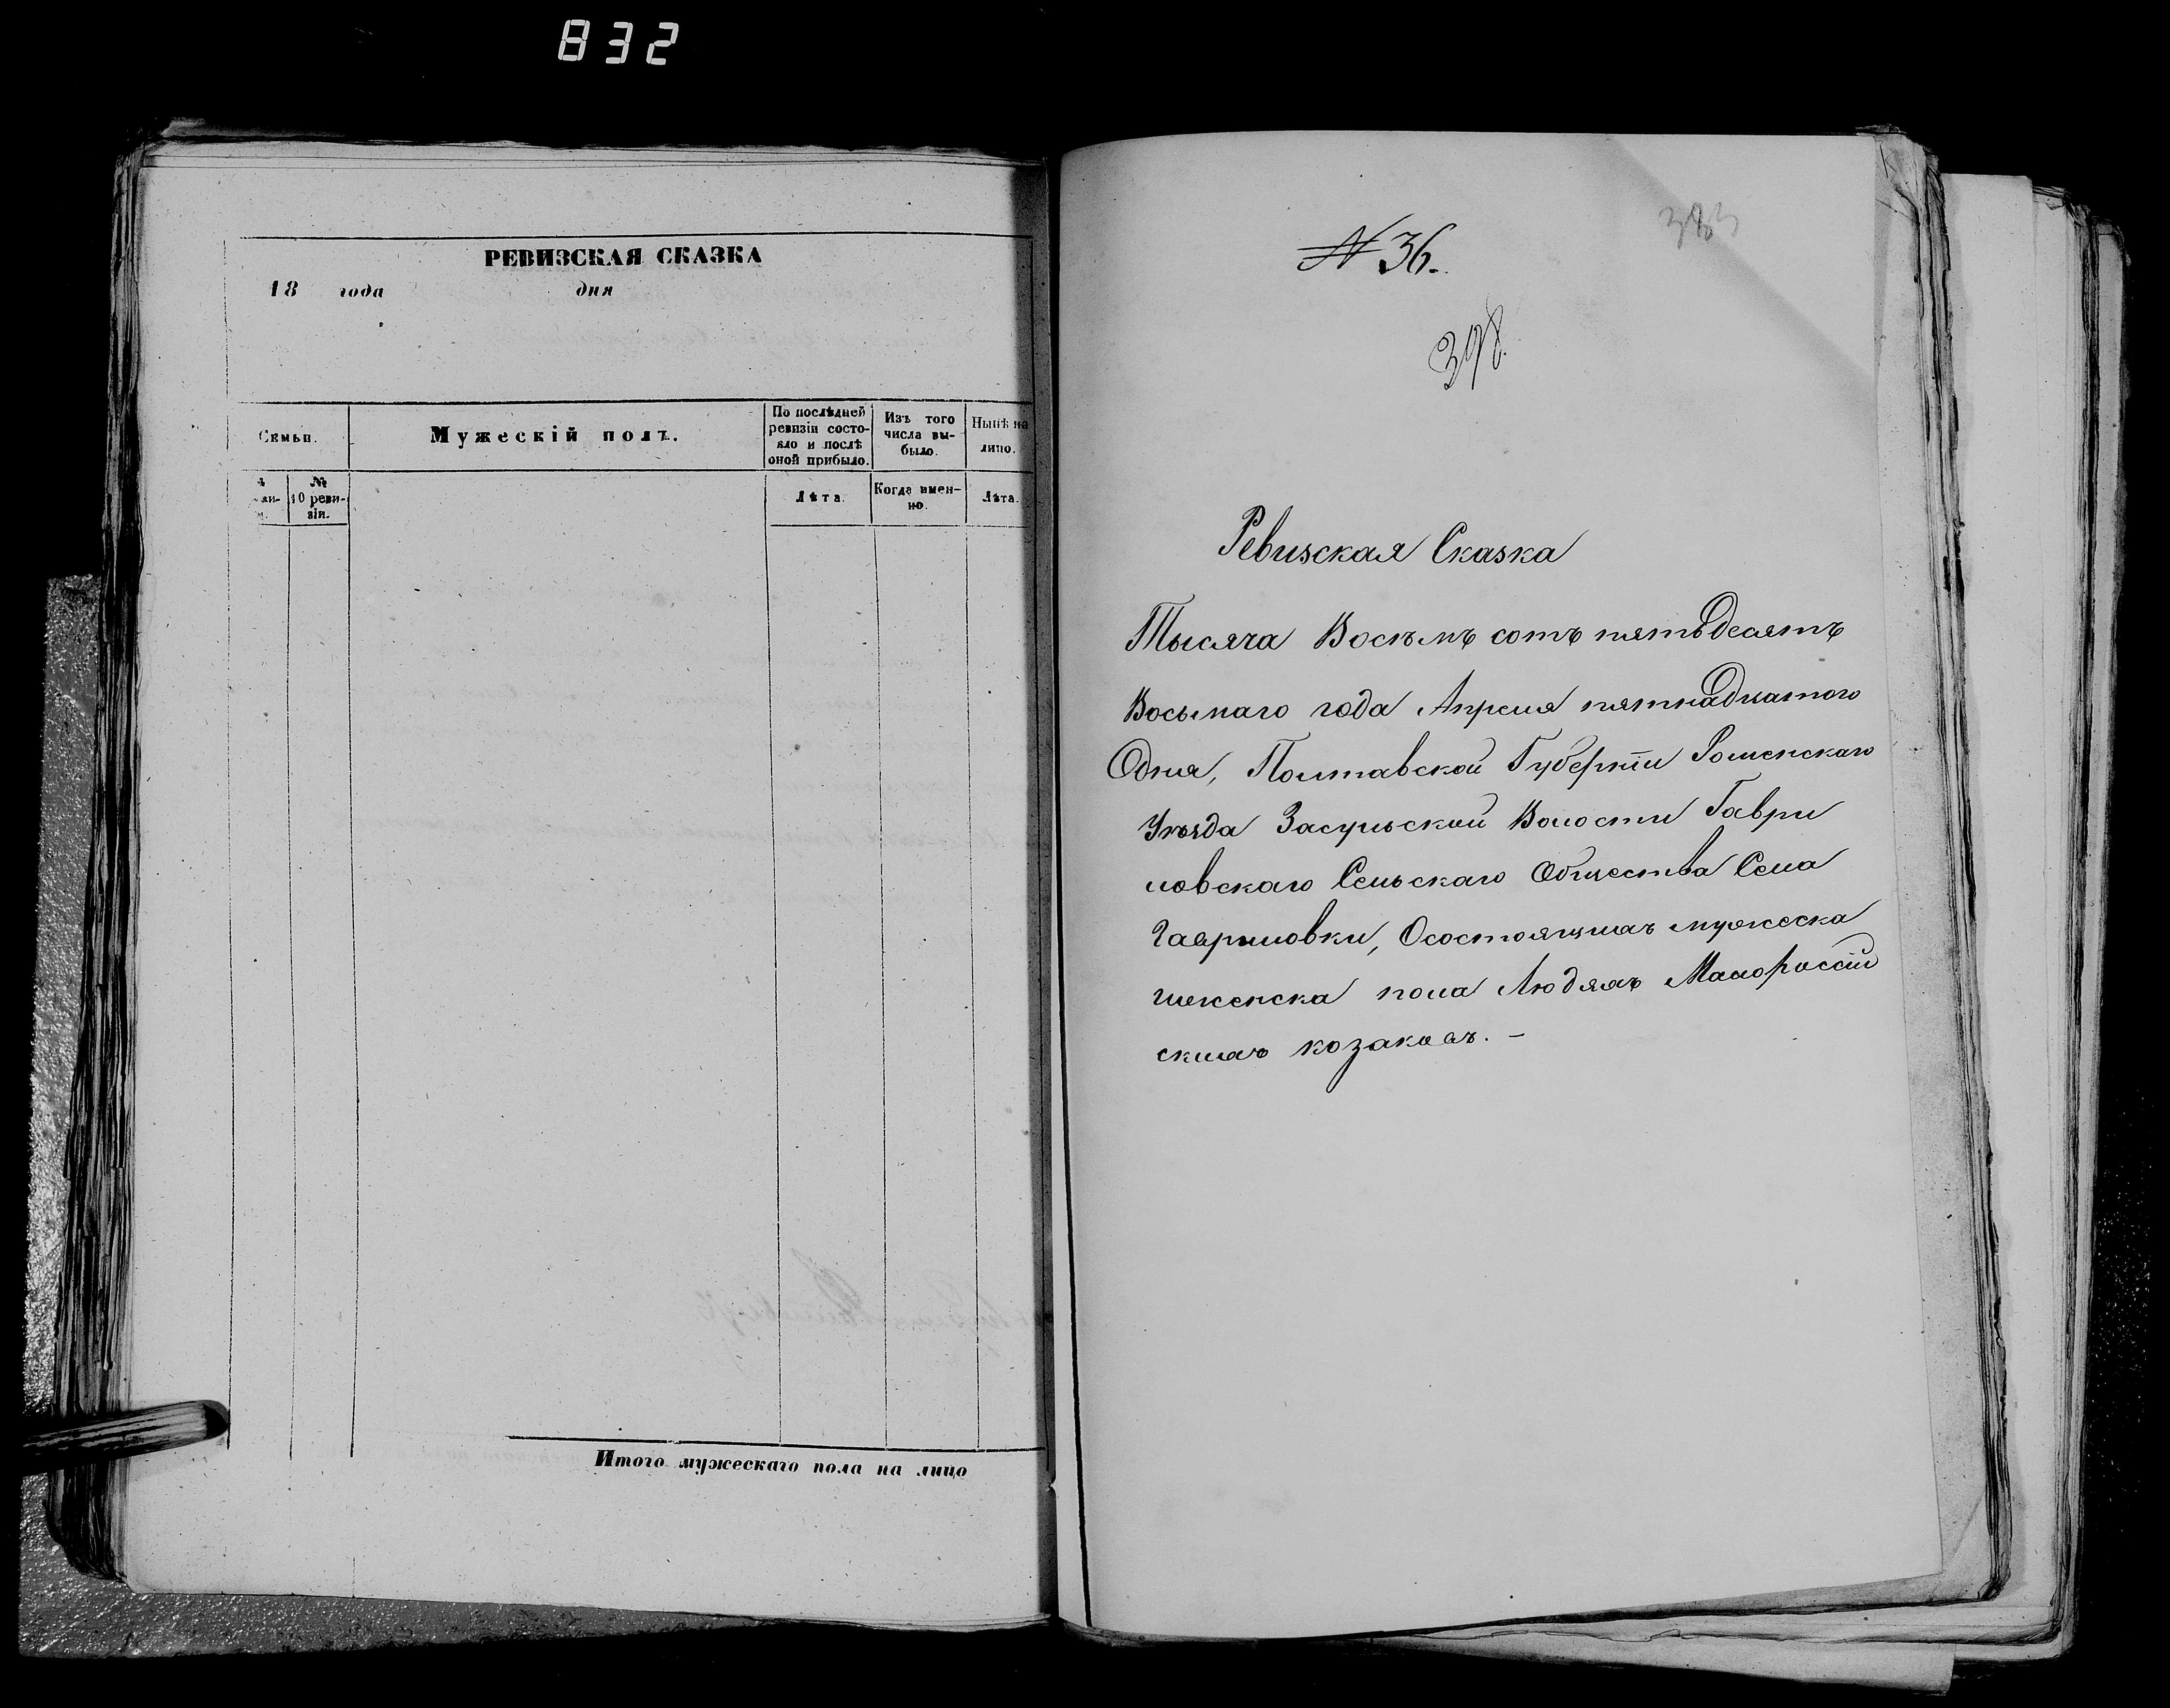 832
РЕВИЗСКАЯ СКАЗКА
18 года дня
Семьи.
Мужескій полъ.
По послѣдней ревизіи состояло и послѣ оной прибыло.
Изъ того числа выбыло.
Нынѣ на лицо.
№ 10 ревизіи.
Лѣта.
Когда именно.
Лѣта.
Итого мужескаго пола на лицо
№ 36.
398.
Ревизская Сказка
Тысяча Восѣмъ сотъ пятьдесятъ
Восьмаго года Апреля пятнадцатого
Одня, Полтавской Губерніи Роменскаго
Уѣзда Засульской Волости Гаври
ловскаго Сельскаго Общества Села
Гавриловки, Осостоящихъ мужеска
иженска пола Людяхъ Малороссій
скихъ козаковъ. –